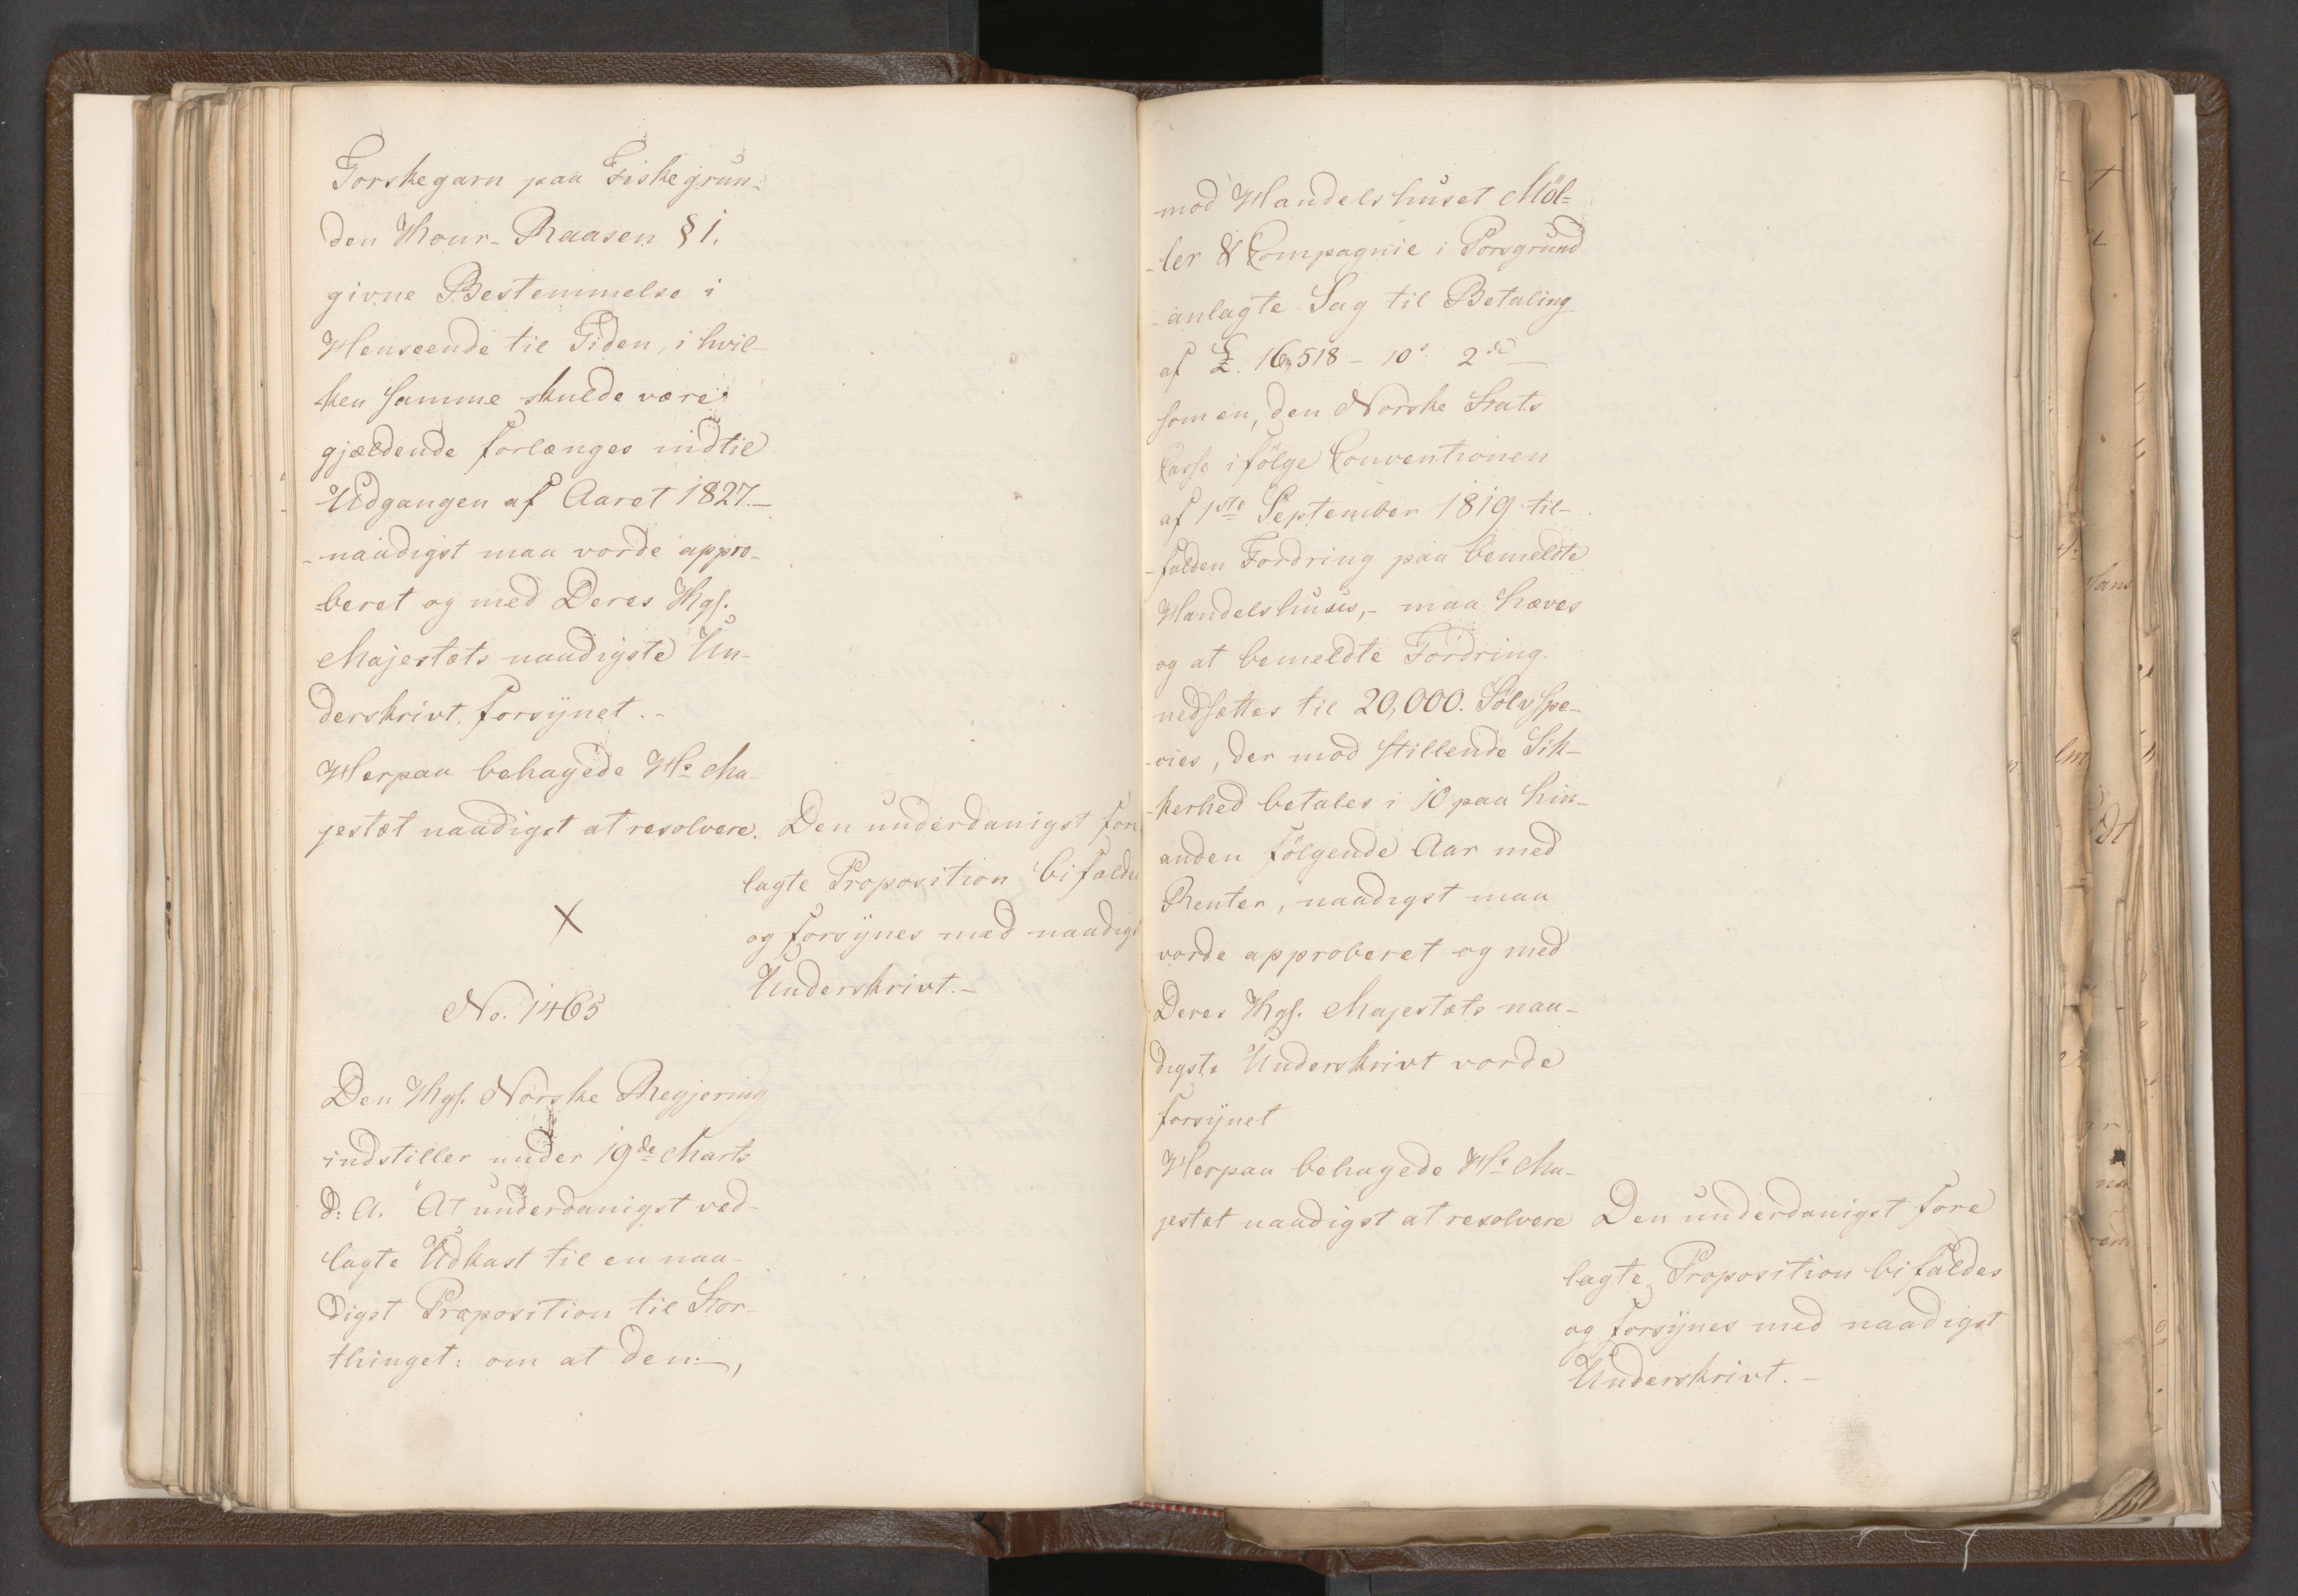 Torskegarn paa Fiskegrun-
den Hour-Raasen § 1.
givne Bestemmelse i
Henseende til Tiden, i hvil-
ken samme skulde være
gjældende forlænges indtil
Udgangen af Aaret 1827.-
naadigst maa vorde appro-
beret og med Deres Kgs.
Majestæts naadigste Un-
derskrivt forsÿnet.-
Herpaa behagede Hs Ma-
jestæt naadigst at resolvere. Den underdanigst fore
lagte Proposition bifaldes
og forsÿnes med naadigst
Underskrivt.-
No. 1465
Den Kgs. Norske Regjering
indstiller under 19de Marts
d: A. "At underdanigst ved-
lagte Udkast til en naa-
digst Proposition til Stor-
thinget: om at den,
mod Handelshuset Möl=
-ler & Compagnie i Porsgrund
anlagte Sag til Betaling
af £. 16,518 - 10s 2d -
som en, den Norske Stats
Casse ifölge Conventionen
af 1ste September 1819 til-
-falden Fordring paa bemeldte
Handelshuus,- maa hæves
og at bemeldte Fordring
nedsættes til 20,000. Sölv Spe-
-cies, der mod stillende Sik-
-kerhed betales i 10 paa hin-
anden fölgende Aar med
Renter, naadigst maa
vorde approberet og med
Deres Kgs. Majestæts naa-
digste Underskrivt vorde
forsÿnet
Herpaa behagede Hs Ma-
jestæt naadigst at resolvere Den underdanigst fore
lagte Proposition bifaldes
og forsÿnes med naadigst
Underskrivt.-